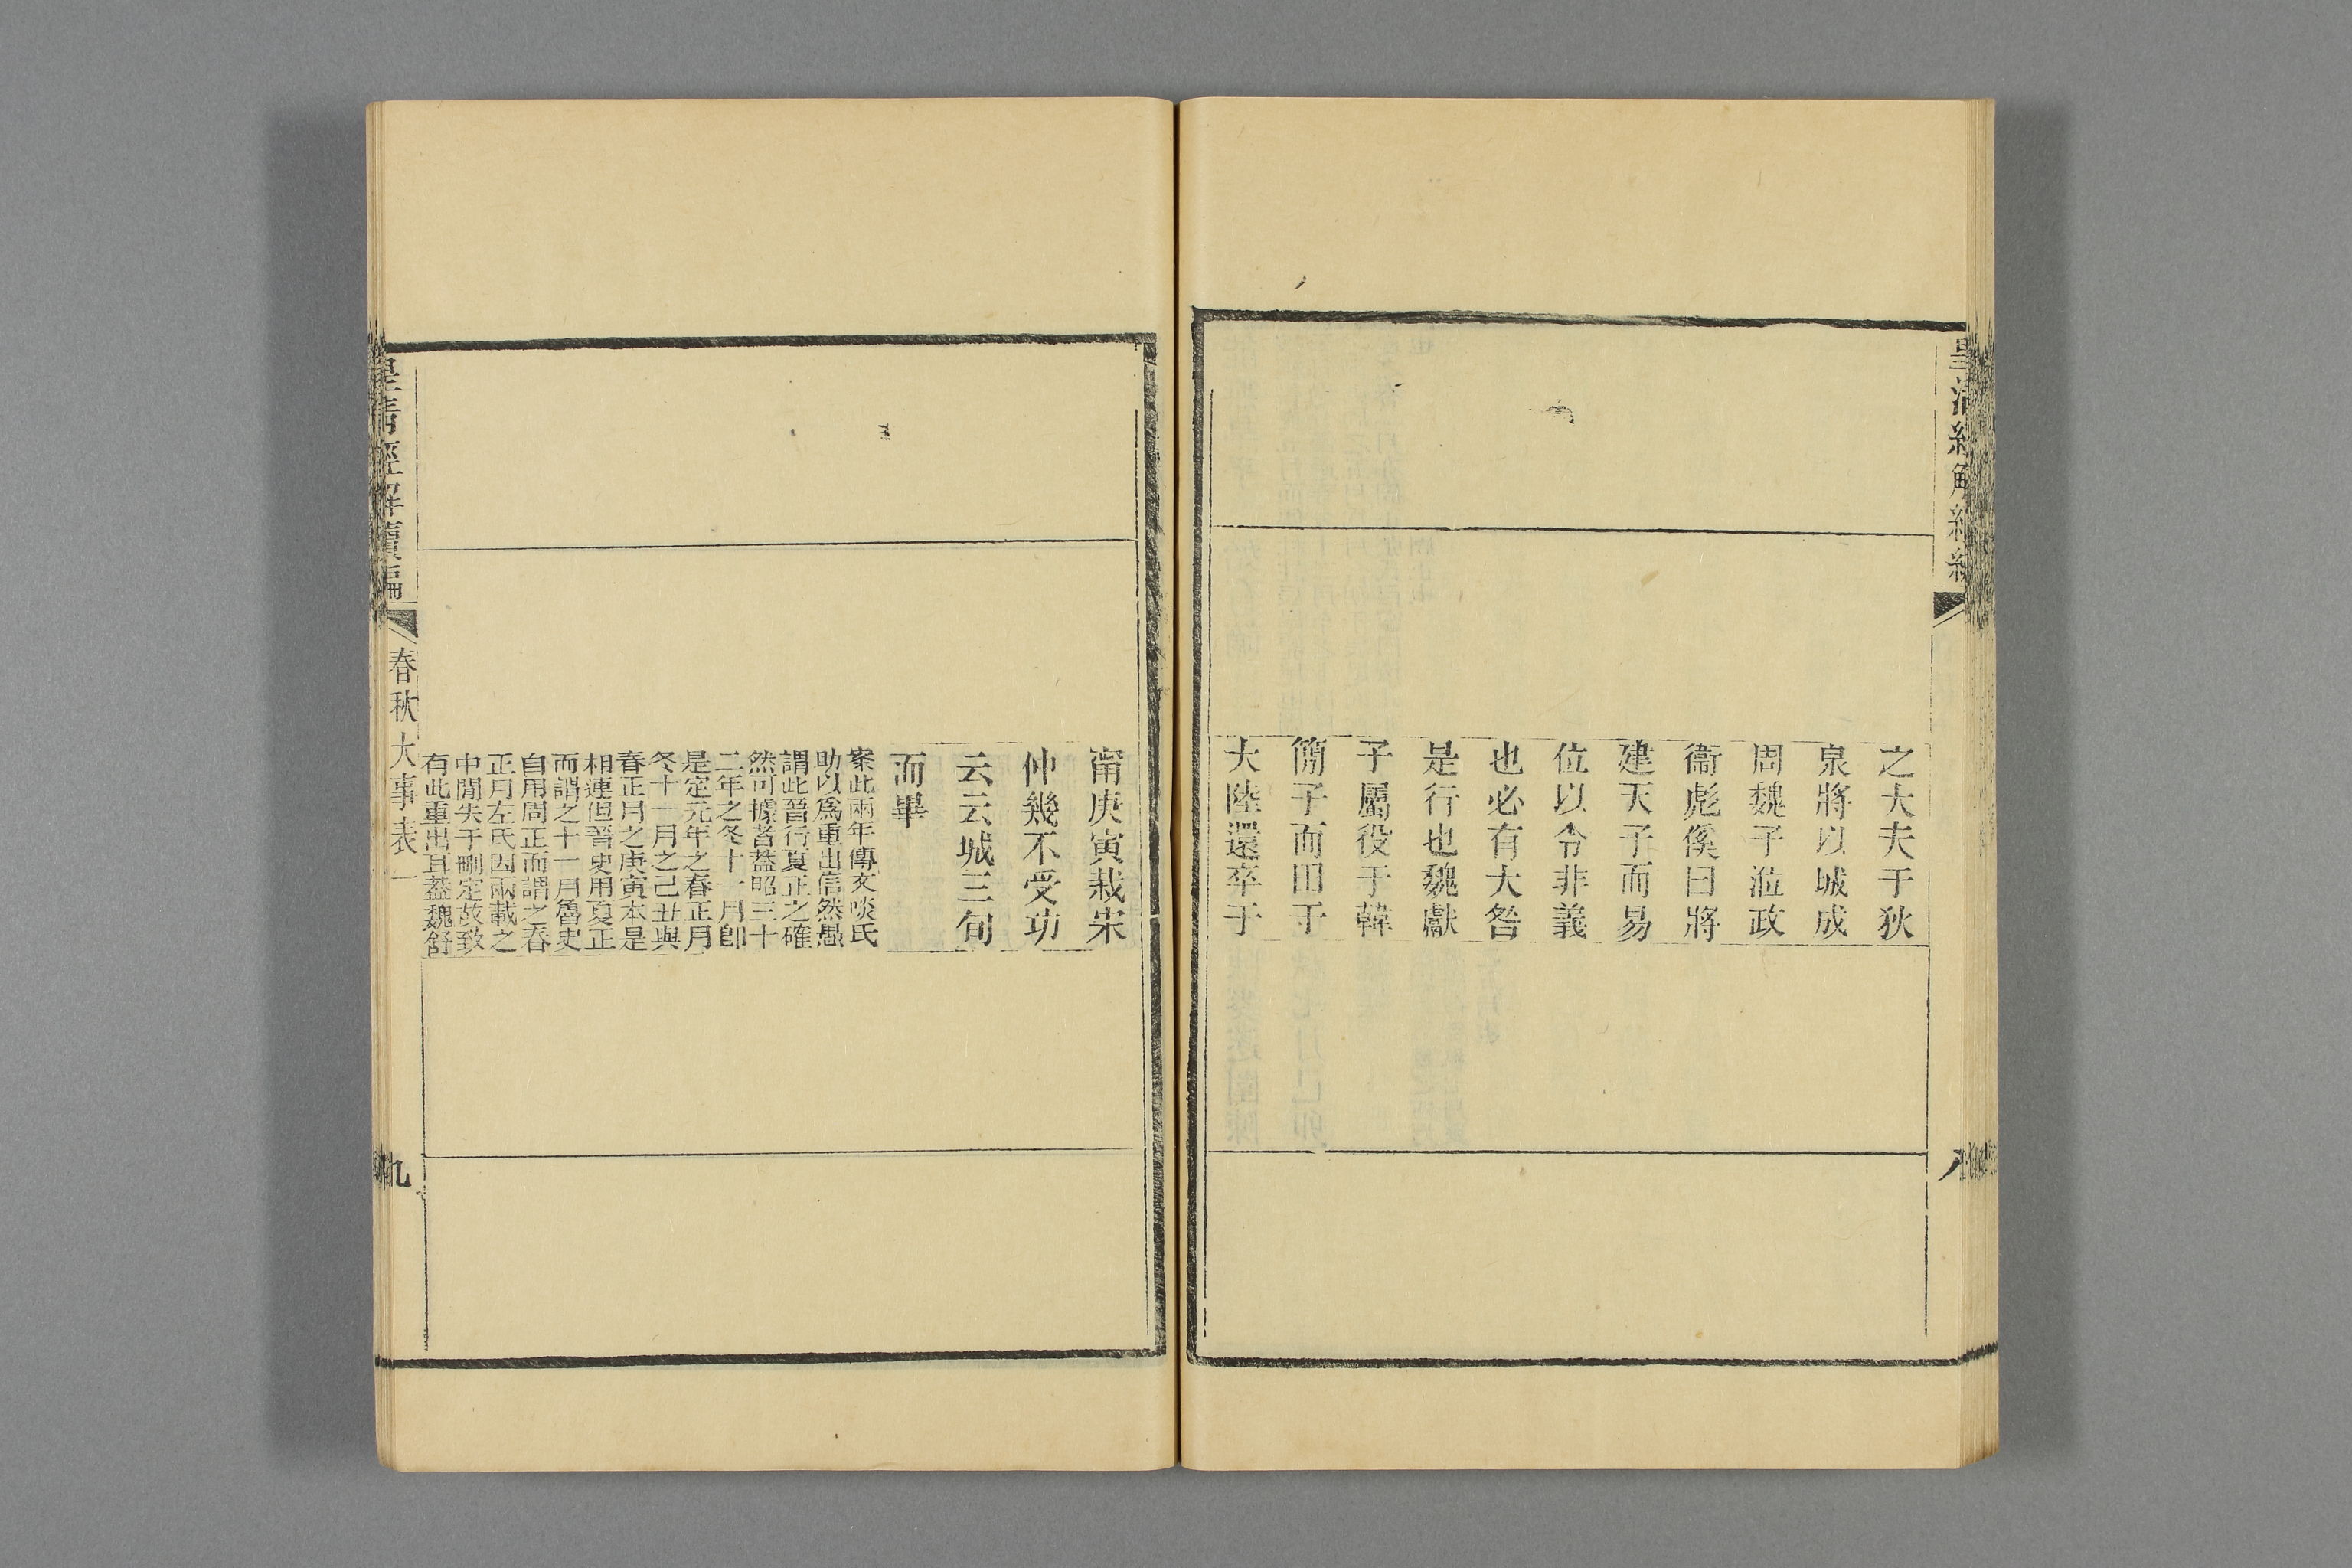 皇清經解續編
八
之大夫于狄
泉將以城成
周魏子涖政
衞彪傒曰將
建天子而易
位以令非義
也必有大咎
是行也魏獻
子屬役于韓
簡子而田于
大陸還卒于
甯庚寅栽宋
仲幾不受功
云云城三旬
而畢
案此兩年傳文啖氏
助以爲重出信然愚
謂此晉行夏正之確
然可據者葢昭三十
二年之冬十一月卽
是定元年之春正月
冬十一月之己丑與
春正月之庚寅本是
相連但晉史用夏正
而謂之十一月魯史
自用周正而謂之春
正月左氏因兩載之
中閒失于刪定故致
有此重出耳葢魏舒
皇清經解續編
春秋大事表一
九